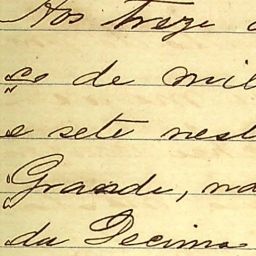 Aos treze
ço de mil
e sete nest
Grande, na
da Decima